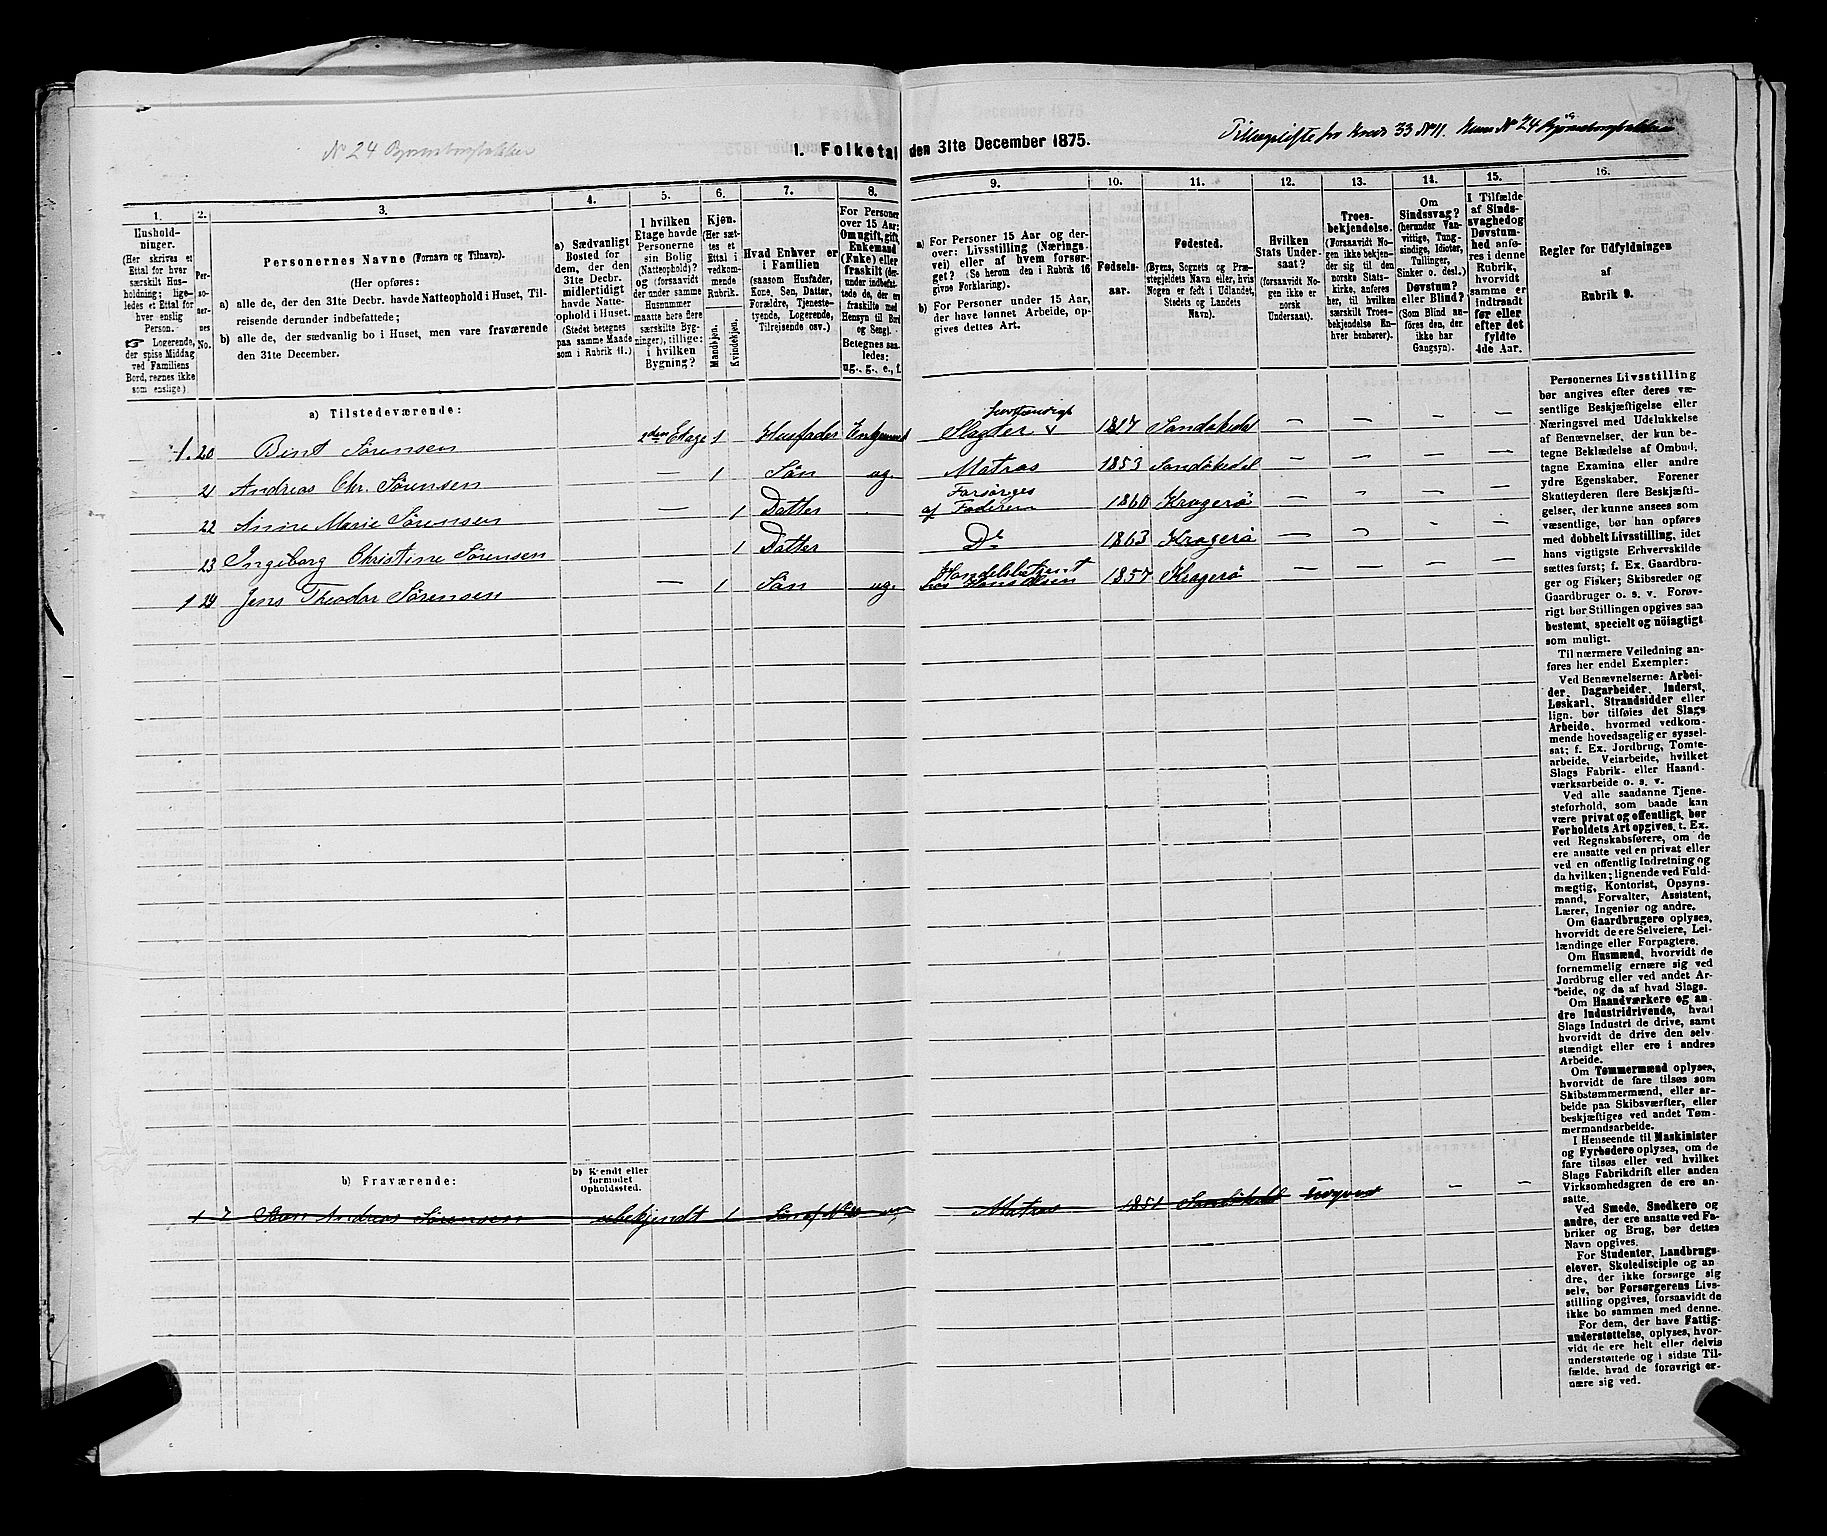 Tillægsliste fra Kreds 33 No 11. Huus No 24 Bjørnsborgbakken
No 24 Bjørnsborgbakken
1. Folketal den 31te December 1875.
1.
2.
3.
4.
5.
6.
7.
8.
9.
10.
11.
12.
13.
14.
15.
16.
Husholdninger.
(Her skrives et
Ettal for hver
særskilt Husholdning;
ligeledes et Ettal for
hver enslig
Person.
☞ Logerende,
der spise Middag
ved Familiens
Bord, regnes ikke
som enslige)
Personernes No.
Personernes Navne (Fornavn og Tilnavn).
(Her opføres:
a) alle de, der den 31te Decbr. havde Natteophold i Huset, Tilreisende derunder indbefattede;
b) alle de, der sædvanlig bo i Huset, men vare fraværende
den 31te December.
a) Sædvanligt
Bosted for
dem, der den
31te Decbr.
midlertidigt
havde Natteophold i Huset.
(Stedet betegnes
paa samme Maade
som i Rubrik 11.)
I hvilken
Etage havde
Personerne
sin Bolig
(Natteophold)?
og (forsaavidt
der under samme
Husnummer
maatte høre flere
særskilte Bygninger), tillige:
i hvilken
Bygning?
Kjøn.
(Her sættes et
Ettal i
vedkommende
Rubrik.
Mandkjøn.
Kvindekjøn.
Hvad Enhver er
i Familien
(saasom Husfader,
Kone, Søn, Datter,
Forældre, Tjenestetyende, Logerende,
Tilreisende osv.)
For Personer
over 15 Aar:
Om ugift, gift,
Enkemand
(Enke) eller
fraskilt (derunder indbefattede de, der ere
fraskilte med
Hensyn til Bord
og Seng).
Betegnes saaledes:
ug., g., e., f.
a) For Personer 15 Aar og derover: Livsstilling (Næringsvei) eller af hvem forsørget? (Se herom den i Rubrik 16
givne Forklaring).
b) For Personer under 15 Aar,
der have lønnet Arbeide, opgives dettes Art.
Fødselsaar.
Fødested.
(Byens, Sognets og Præstegjeldets Navn eller, hvis
Nogen er født i Udlandet,
Stedets og Landets
Navn).
Hvilken
Stats Undersaat?
(forsaavidt Nogen ikke er
norsk
Undersaat).
Troesbekjendelse.
(Forsaavidt Nogen ikke bekjender sig til den
norske Statskirke, anføres
her, til hvilken
særskilt Troesbekjendelse Enhver henhører).
Om
Sindssvag?
(herunder Vanvittige, Tungsindige, Idioter,
Tullinger,
Sinker o. desl.)
Døvstum?
eller Blind?
(Som Blind anføres den, der
ikke har
Gangsyn).
I Tilfælde
af Sindssvaghed og
Døvstumhed anføres i denne
Rubrik,
hvorvidt
samme er
indtraadt
før eller
efter det
fyldte
4de Aar.
Regler for Udfyldningen
af
Rubrik 9.
a) Tilstedeværende:
1. 20 Bent Sørensen 2den Etage 1 Husfader Enkemand Slagter selvstændigt 1817 Sandøkedal — — — —
21 Andreas Chr. Sørensen — 1 Søn ug. Matros 1853 Sandøkedel — — — —
22 Anne Marie Sørensen — 1 Datter Forsørges af Faderen 1860 Kragerö — — — —
23 Ingeborg Christine Sørensen 1 Datter Do 1863 Kragerø — — — —
1 24 Jens Theodor Sørensen — 1 Sön ug. Handelsbetjent hos Hans Olsen 1857 Kragerö — — — —
b) Fraværende:
b) Kjendt eller
formodet
Opholdssted.
1 7 Andreas Sørensen ubekjendt 1 Søn af No 20 ug. Matros 1851 Sandökedal — —
Personernes Livsstilling
bør angives efter deres væsentlige Beskjæftigelse eller
Næringsvei med Udelukkelse
af Benævnelser, der kun betegne Beklædelse af Ombud,
tagne Examina eller andre
ydre Egenskaber. Forener
Skatteyderen flere Beskjæftigelser, der kunne ansees som
væsentlige, bør han opføres
med dobbelt Livsstilling, idet
hans vigtigste Erhvervskilde
sættes først; f. Ex. Gaardbruger og Fisker; Skibsreder og
Gaardbruger o. s. v. Forøvrigt bør Stillingen opgives saa
bestemt, specielt og nöiagtigt
som muligt.
Til nærmere Veiledning anføres her endel Exempler:
Ved Benævnelserne: Arbeider, Dagarbeider, Inderst,
Løskarl, Strandsidder eller
lign. bør tilføies det Slags
Arbeide, hvormed vedkommende hovedsagelig er sysselsat; f. Ex. Jordbrug, Tomtearbeide, Veiarbeide, hvilket
Slags Fabrik- eller Haandværksarbeide o. s. v.
Ved alle saadanne Tjenesteforhold, som baade kan
være privat og offentligt, bør
Forholdets Art opgives, t. Ex.
ved Regnskabsførere, om de
ere ansatte ved en privat eller
ved en offentlig Indretning og
da hvilken; lignende ved Fuldmægtig, Kontorist, Opsynsmand, Forvalter, Assistent,
Lærer, Ingeniør og andre.
Om Gaardbrugere oplyses,
hvorvidt de ere Selveiere, Leilændinge eller Forpagtere.
Om Husmænd, hvorvidt de
fornemmelig ernære sig ved
Jordbrug eller ved andet Arbeide, og da af hvad Slags.
Om Haandværkere og andre Industridrivende, hvad
Slags Industri de drive, samt
hvorvidt de drive den selvstændigt eller ere i andres
Arbeide.
Om Tømmermænd oplyses,
hvorvidt de fare tilsøs som
Skibstømmermænd, eller arbeide paa Skibsværfter, eller
beskjæftiges ved andet Tømmermandsarbeide.
I Henseende til Maskinister
og Fyrbødere oplyses, om de
fare tilsøs eller ved hvilket
Slags Fabrikdrift eller anden
Virksomhedsgren de ere ansatte.
Ved Smede, Snedkere og
andre, der ere ansatte ved Fabriker og Brug, bør dettes
Navn opgives.
For Studenter, Landbrugselever, Skoledisciple og andre, der ikke forsørge sig
selv, bør Forsørgerens Livsstilling opgives, forsaavidt de
ikke bo sammen med denne.
For dem, der have Fattigunderstøttelse, oplyses, hvorvidt de ere helt eller delvis
understøttede og i sidste Tilfælde, hvad de forøvrigt ernære sig ved.